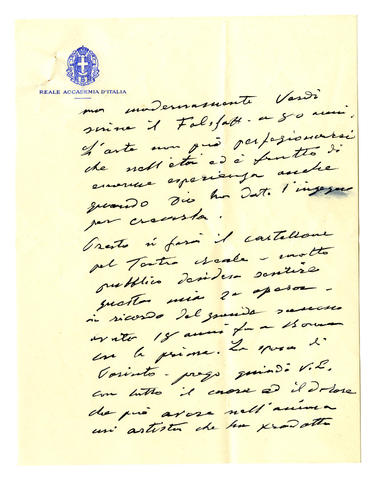 REALE ACCADEMIA D'ITALIA
ma modernamente Verdi
scrive il Falstaff a 80 anni.
L'arte non può perfezionarsi
che nell'età ed è frutto di
esperienza anche
quando Dio ha dato l'ingegno
per crearla.
Presto si farà il cartellone
pel Teatro Reale - molto
pubblico desidera sentire
questa mia 2a opera -
in ricordo del grande successo
avuto 18 anni fa a Roma
con la prima. La sposa di
Corinto - prego quindi V.E.
con tutto il cuore ed il dolore
che può avere nell'anima
un artista che ha prodotto